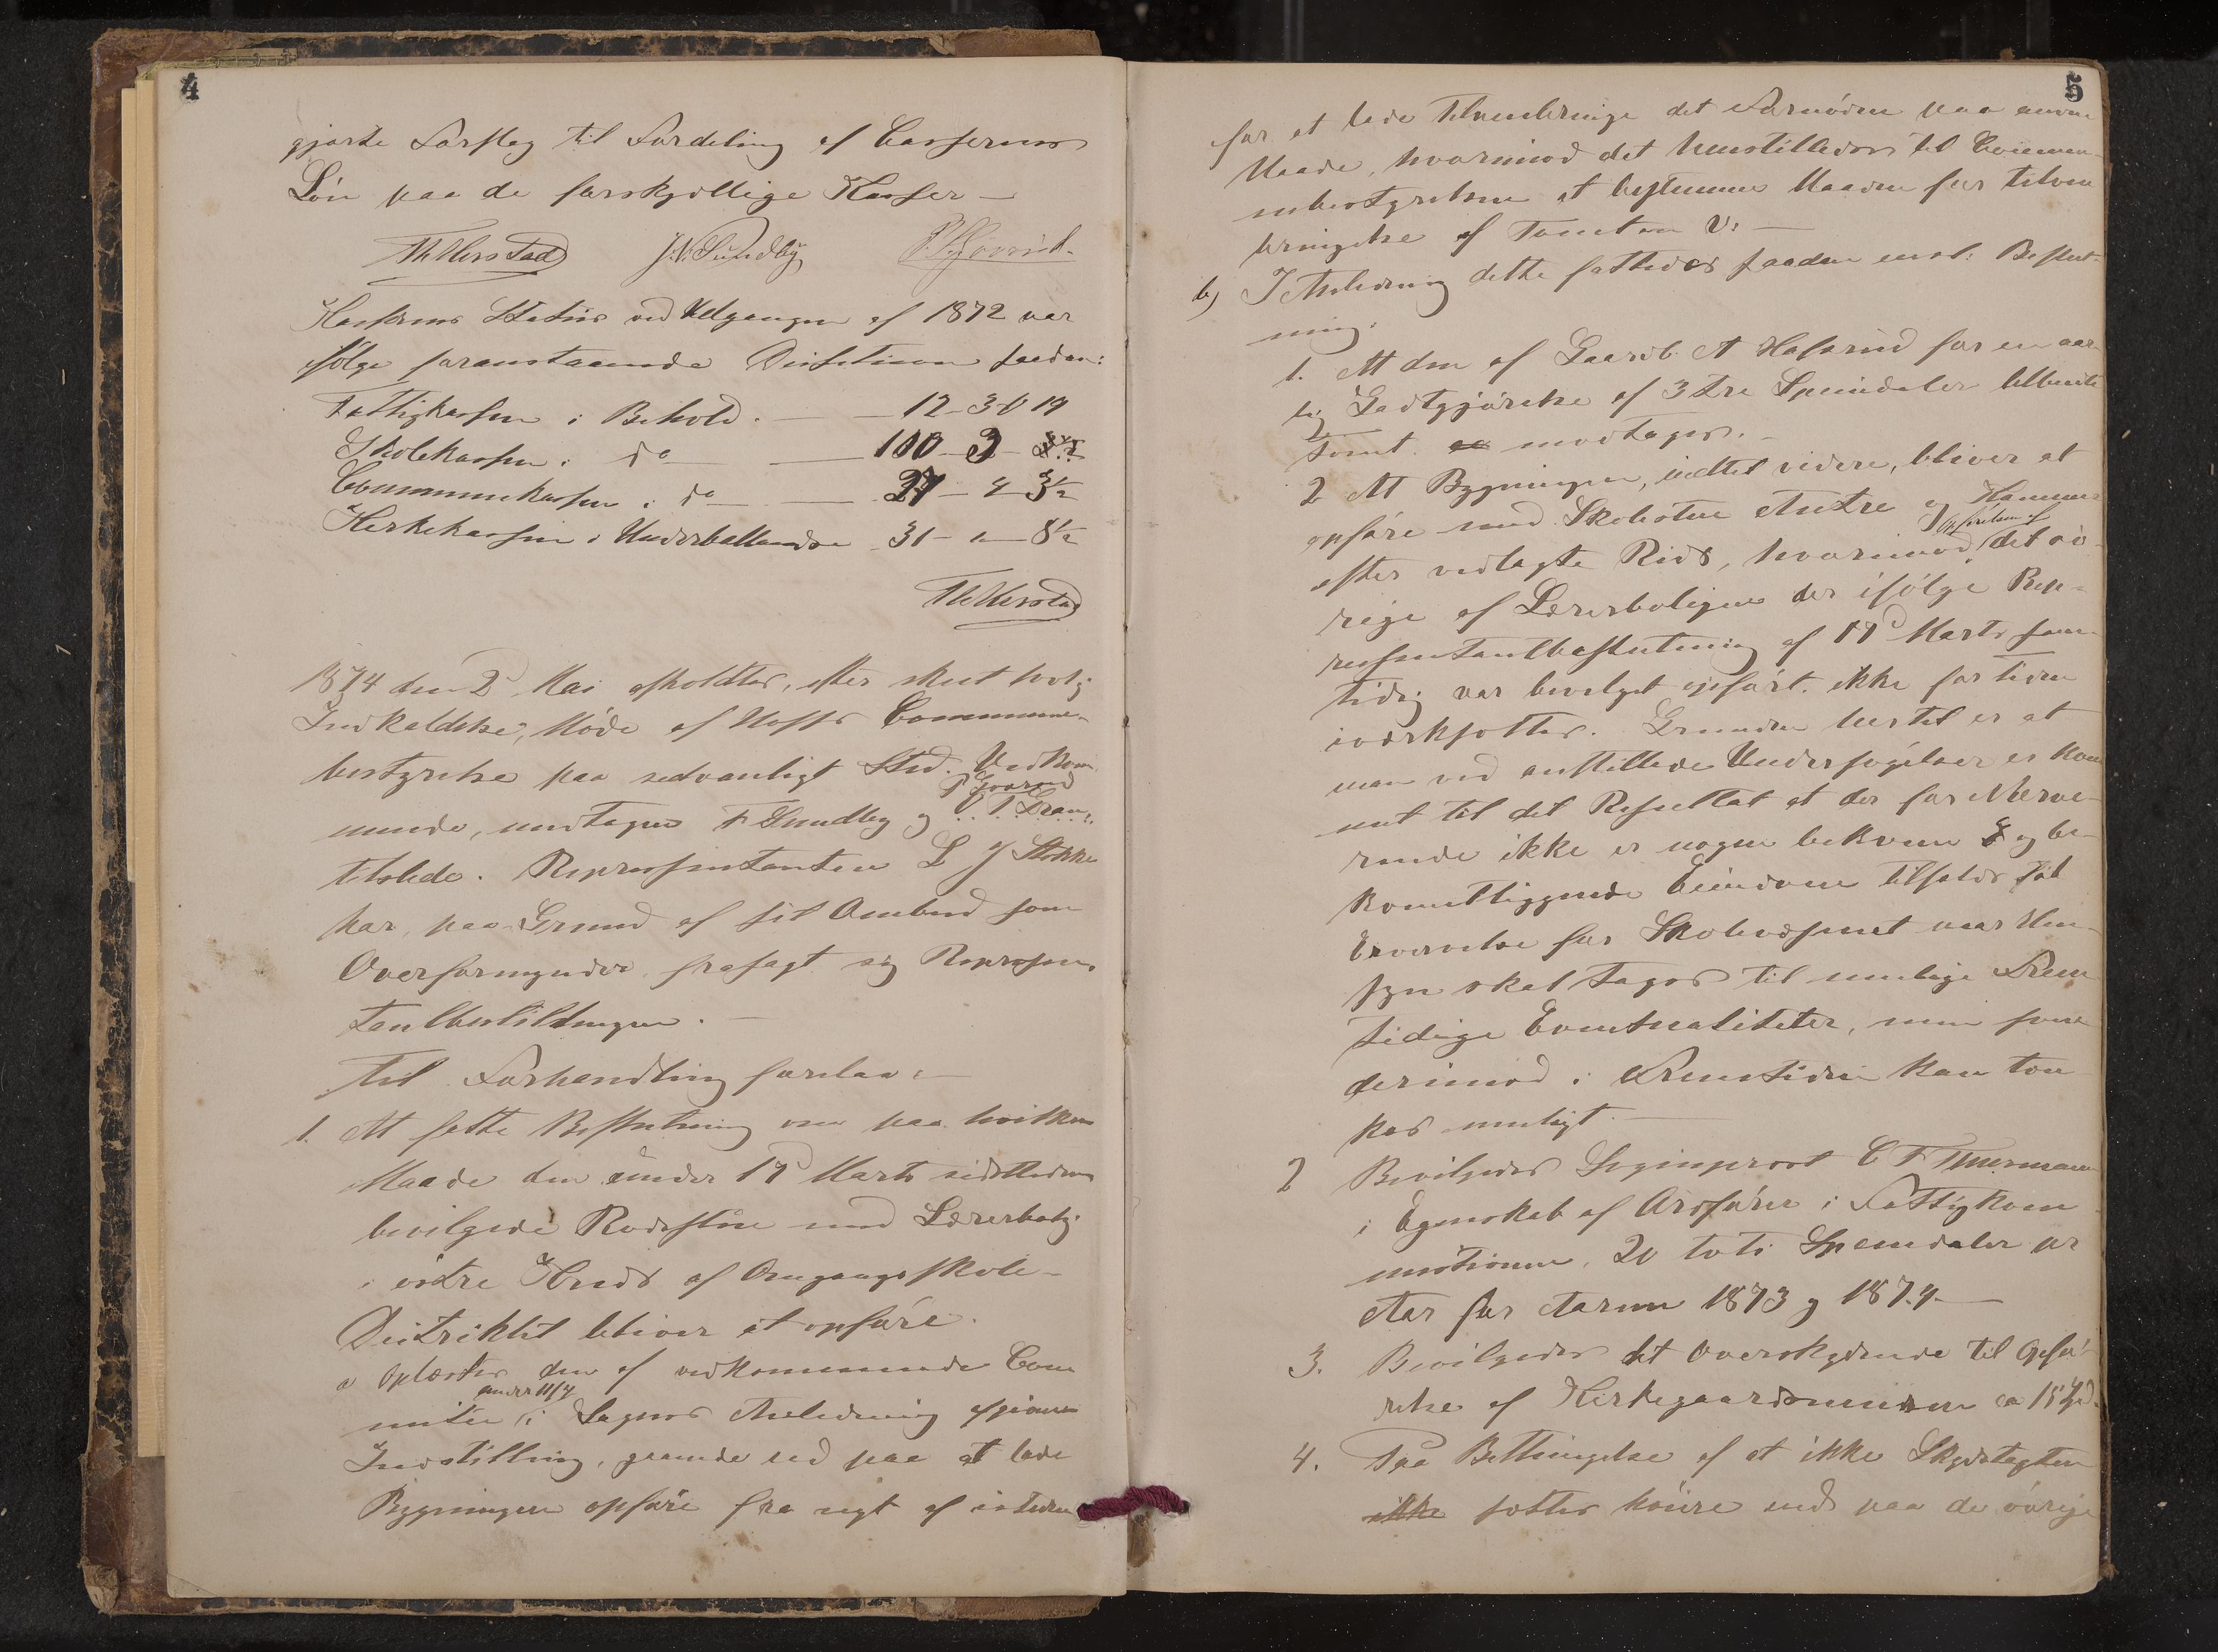 4
gjorte Forslag til Fordeling af Casserens
Løn paa de forskjellige Kasser —
Kassernes Status ved Udgangen af 1872 var
ifølge foranstaaende Decisioner saadan:
Fattigkassen i Behold. — 12-3-0 19
Skolekassen i do — 100-3-
Communekassen i do — 27-4-3½
Kirkekassen i Underballance 31-"-8½
1874 den 2 Mai afholdtes, efter skeet lovlig
Indkaldelse, Møde af Hoffs Commune-
bestyrelse paa sedvanligt Sted. Vedkom-
mende, undtagen F Sundby og
tilstede. Repræsentanten L J Stokke
har, paa Grund af sit Ombud som
Overformynder frasagt sig Repræsen-
tantbestillingen. —
Til Forhandling forelaa: —
1. At fatte Beslutning om paa hvilken
Maade den under 17 Marts sidstleden
bevilgede Rodestue med Lærerbolig
i østre Kreds af Omgangsskole-
Distriktet bliver at opføre.
a Oplæstes den af vedkommende Com-
mitee i Sagens Anledning afgivne
Indstilling, gaaende ud paa at lade
Bygningen opføre fra nyt af istedet
5
for at lade tilveiebringe det Fornødne paa anden
Maade, hvorimod det henstilledes til Commu-
nebestyrelsen at bestemme Maaden for Tilveie-
bringelse af Tomten &. —
b) I Anledning dette fattedes saadan enst. Beslut-
ning:
1. At den af Gaardb. A Hafsrud for en aar-
lig Godtgjørelse af 3 tre Speciedaler tilbudte
Tomt modtages. —
2 At Bygningen, indtil videre, bliver at
opføre med Skolestue Entre og Kammer
efter vedlagte Rids, hvorimod Opførelsen af det øv-
rige af Lærerboligen der ifølge Rep-
resentantbeslutning af 17 Marts sam-
tidig var bevilget opført. ikke for tiden
iværksættes. Grunden hertil er at
man ved anstillede Undersøgelser er kom-
met til det Resultat at der for Nærvæ-
rende ikke er nogen bekvem og be-
kvemtliggende Eiendom tilfals til
Erværvelse for Skolevæsenet naar Hen-
syn skal tages til mulige Frem-
tidige Eventualiteter, men som
derimod i Fremtiden kan tæn-
kes muligt. —
2 Bevilgedes Sogneprest C F Thurmann
i Egenskab af Ordfører i Fattigkom-
missionen, 20 tyve Speciedaler pr
Aar for Aarene 1873 og 1874. —
3. Bevilgedes det Overskydende til Opfø-
relse af Kirkegaardsmuren ca 15 Spd.
4. Paa Betingelse af at ikke Skydstaxten
ikke sættes høiere end paa de øvrige